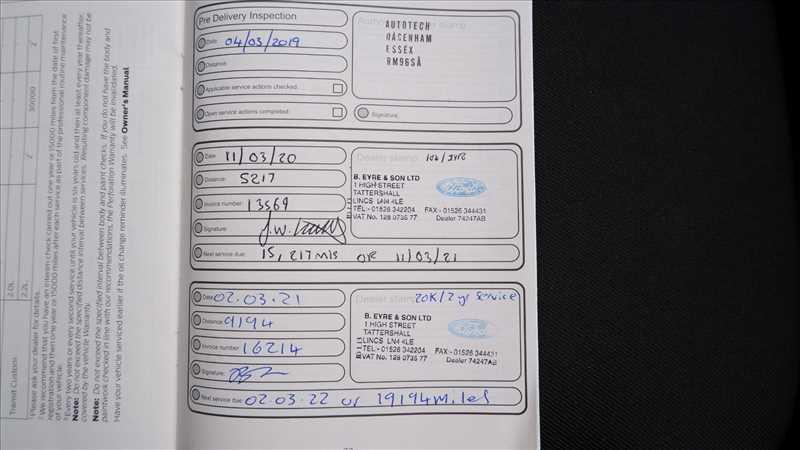 Transit Custom
2.0L
2.2L
30000
2
2
¹ Please ask your dealer for details.
² We recommend that you have an interim check carried out one year or 15000 miles from the date of first
registration and then one year or 15000 miles after each service as part of the professional routine maintenance
of your vehicle.
³ Every two years or every second service until your vehicle is six years old and then at least every year thereafter.
Note: Do not exceed the specified distance interval between services. Resulting component damage may not be
covered by the vehicle Warranty.
Note: Do not exceed the specified interval between body and paint checks. If you do not have the body and
paintwork checked in line with our recommendations, the Perforation Warranty will be invalidated.
Have your vehicle serviced earlier if the oil change reminder illuminates. See Owner's Manual.
Pre Delivery Inspection
Date: 04/03/2019
Distance:
Applicable service actions checked:
Open service actions completed:
AUTOTECH
DAGENHAM
ESSEX
RM96SA
Signature:
Date: 11/03/20
Distance: 5217
Invoice number: 13569
Signature:
Next service due: 15,217 mls or 11/03/21
Dealer stamp 10k/1YR
B. EYRE & SON LTD
1 HIGH STREET
TATTERSHALL
LINCS LN4 4LE
TEL - 01526 342204 FAX - 01526 344431
VAT No. 128 0735 77 Dealer 74247AB
Ford
Date: 02.03.21
Distance: 9194
Invoice number: 16214
Signature:
Next service due: 02.03.22 or 19194 miles
Dealer stamp 20K/2 yr Service
B. EYRE & SON LTD
1 HIGH STREET
TATTERSHALL
LINCS LN4 4LE
TEL - 01526 342204 FAX - 01526 344431
VAT No. 128 0735 77 Dealer 74247AB
Ford